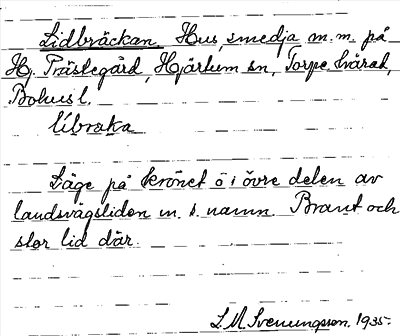 Lidbräckan. Hus, smedja m.m. på
Hj. Prästegård, Hjärtum sn, Torpe härad,
Bohusl.
libraka
Läge på krönet ö i övre delen av
landsvägsliden m. s. namn. Brant och
stor lid där.
L M Svenungsson. 1935.